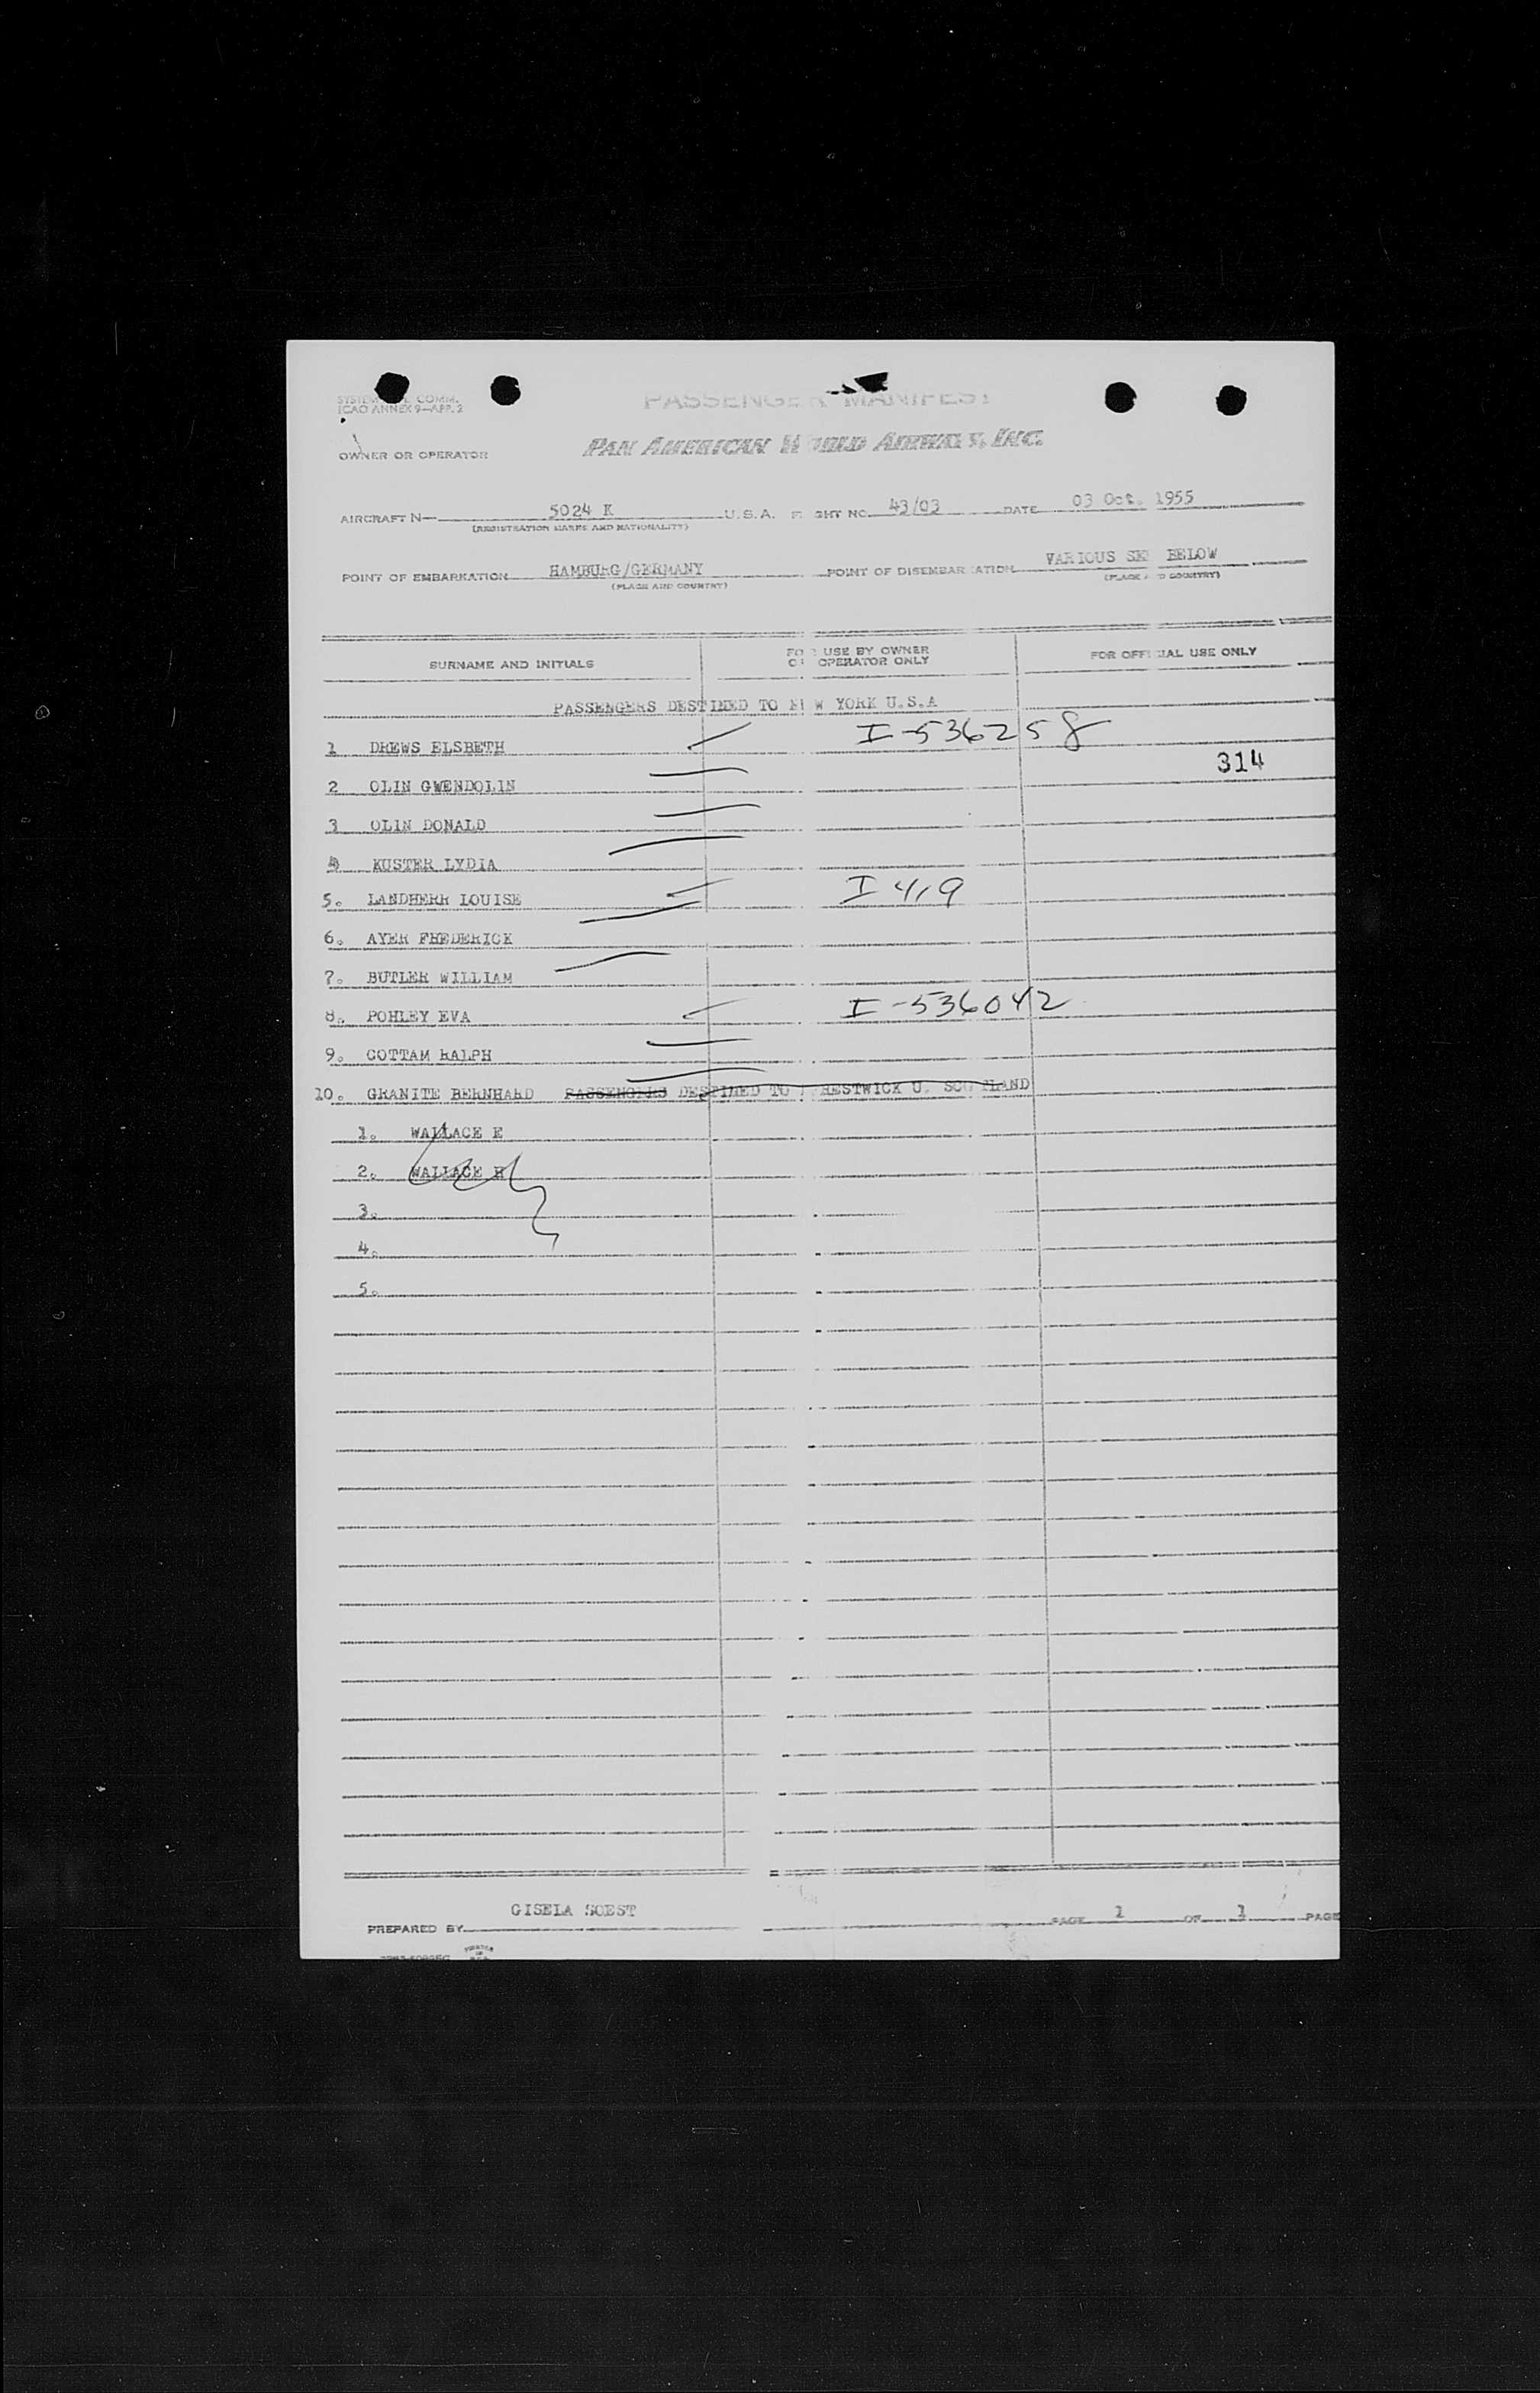 ICAO ANNEX 9—APP. 2
PASSENGER MANIFEST
OWNER OR OPERATOR
PAN AMERICAN WORLD AIRWAYS, INC.
AIRCRAFT N— 5024 K U.S.A. FLIGHT NO. 43/03 DATE 03 Oct. 1955
(REGISTRATION MARKS AND NATIONALITY)
POINT OF EMBARKATION HAMBURG/GERMANY POINT OF DISEMBARKATION VARIOUS SEE BELOW
(PLACE AND COUNTRY) (PLACE AND COUNTRY)
SURNAME AND INITIALS FOR USE BY OWNER OR OPERATOR ONLY FOR OFFICIAL USE ONLY
PASSENGERS DESTINED TO NEW YORK U.S.A
1 DREWS ELSBETH I-536258
314
2 OLIN GWENDOLIN
3 OLIN DONALD
4 KUSTER LYDIA
5. LANDHERR LOUISE I 419
6. AYER FREDERICK
7. BUTLER WILLIAM
8. POHLEY EVA I-536042
9. COTTAM RALPH
10. GRANITE BERNHARD PASSENGERS DESTINED TO PRESTWICK U. SCOTLAND
1. WALLACE E
2. WALLACE H
3.
4.
5.
GISELA SOEST
PREPARED BY PAGE 1 OF 1 PAGE